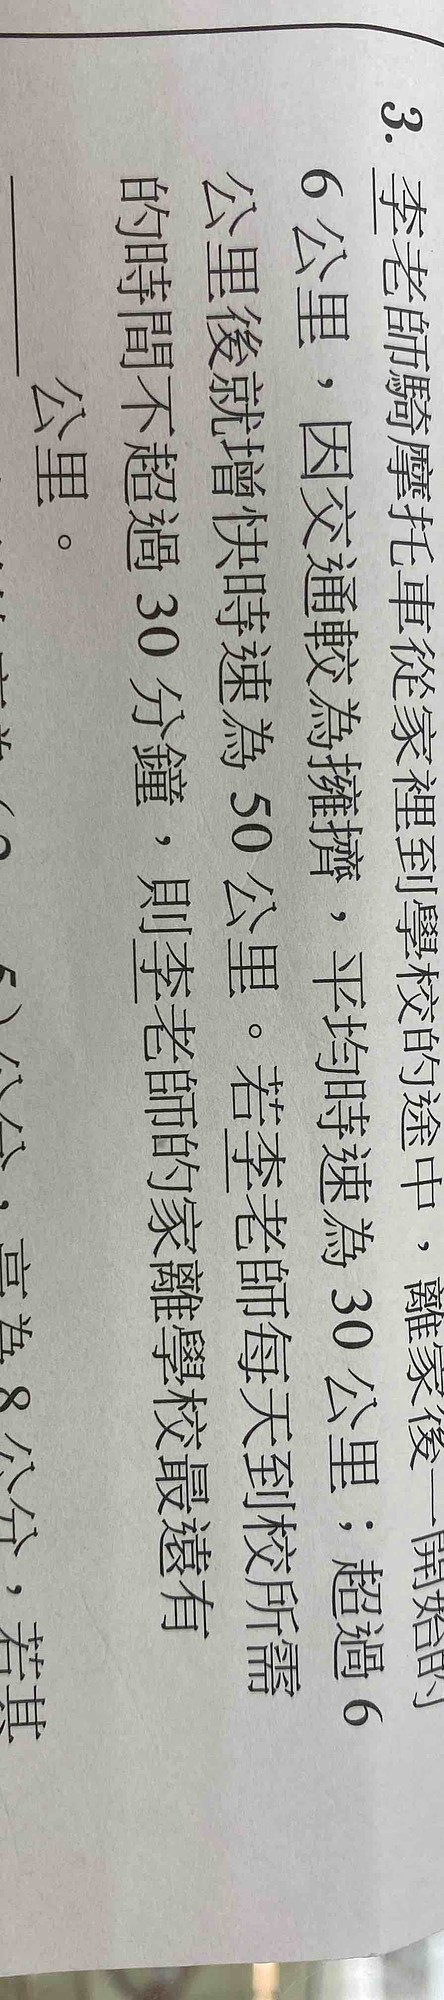 3. 李老師騎摩托車從家裡到學校的途中，離家後一開始的
6 公里，因交通較為擁擠，平均時速為 30 公里；超過 6
公里後就增快時速為 50 公里。若李老師每天到校所需
的時間不超過 30 分鐘，則李老師的家離學校最遠有
公里。
5) 公分，高為 8 公分，若其